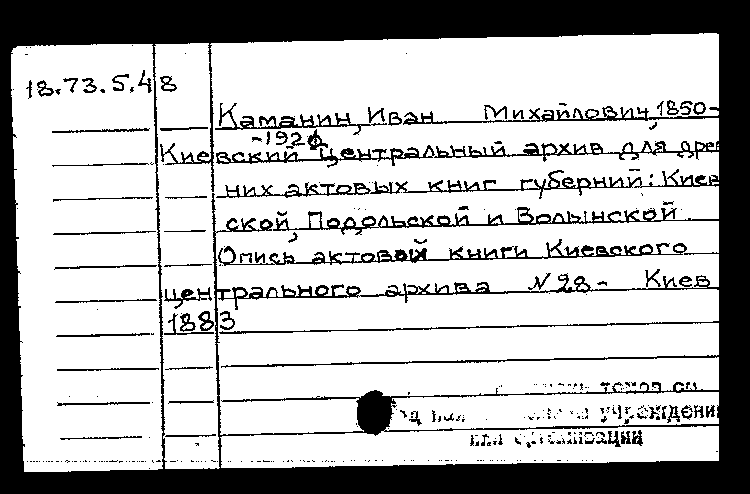 18.73.5.48
Каманин, Иван Михайлович, 1850-
-192
Киевский центральный архив для древ
них актовых книг губерний: Киев
ской, Подольской и Волынской.
Опись актовой книги Киевского
центрального архива №28- Киев
1883
томов см.
учреждения
или организации